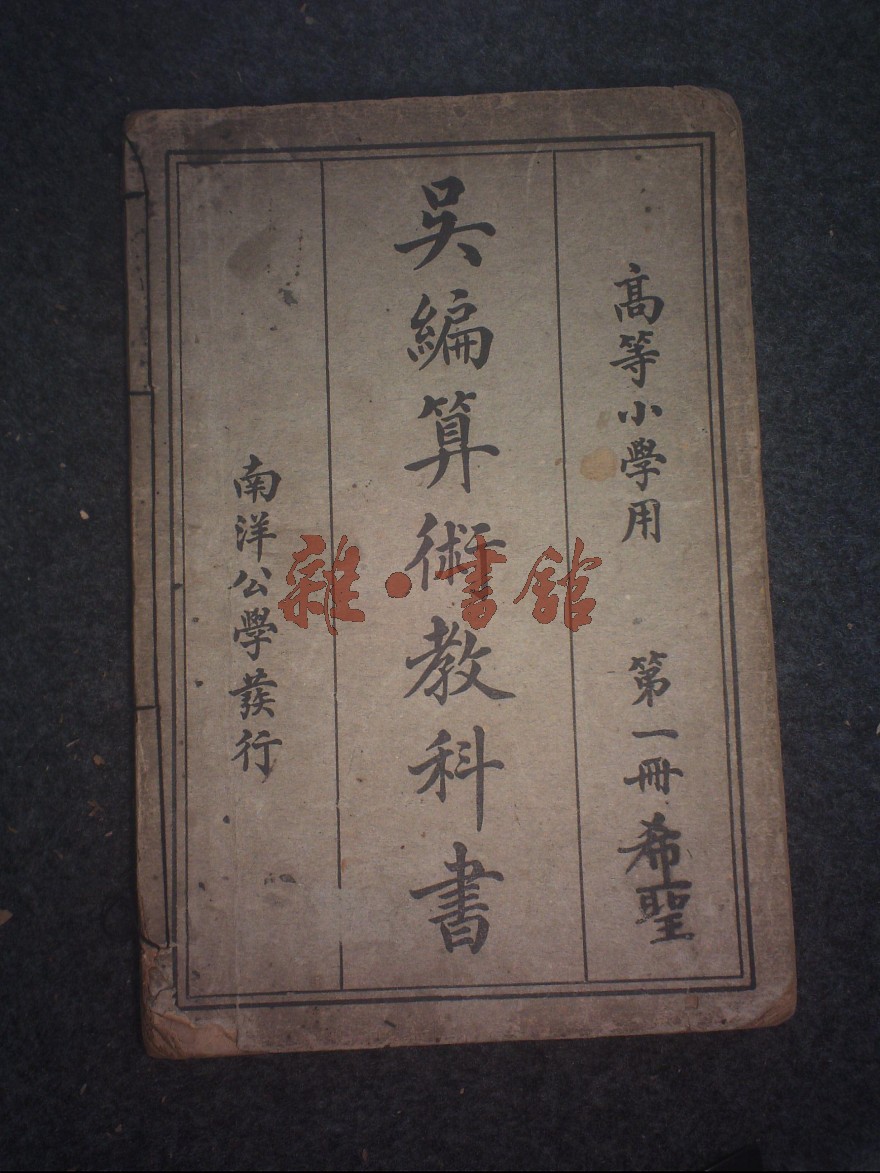 高等小學用 第一冊 希聖
吳編算術教科書
南洋公學發行
雜·書館